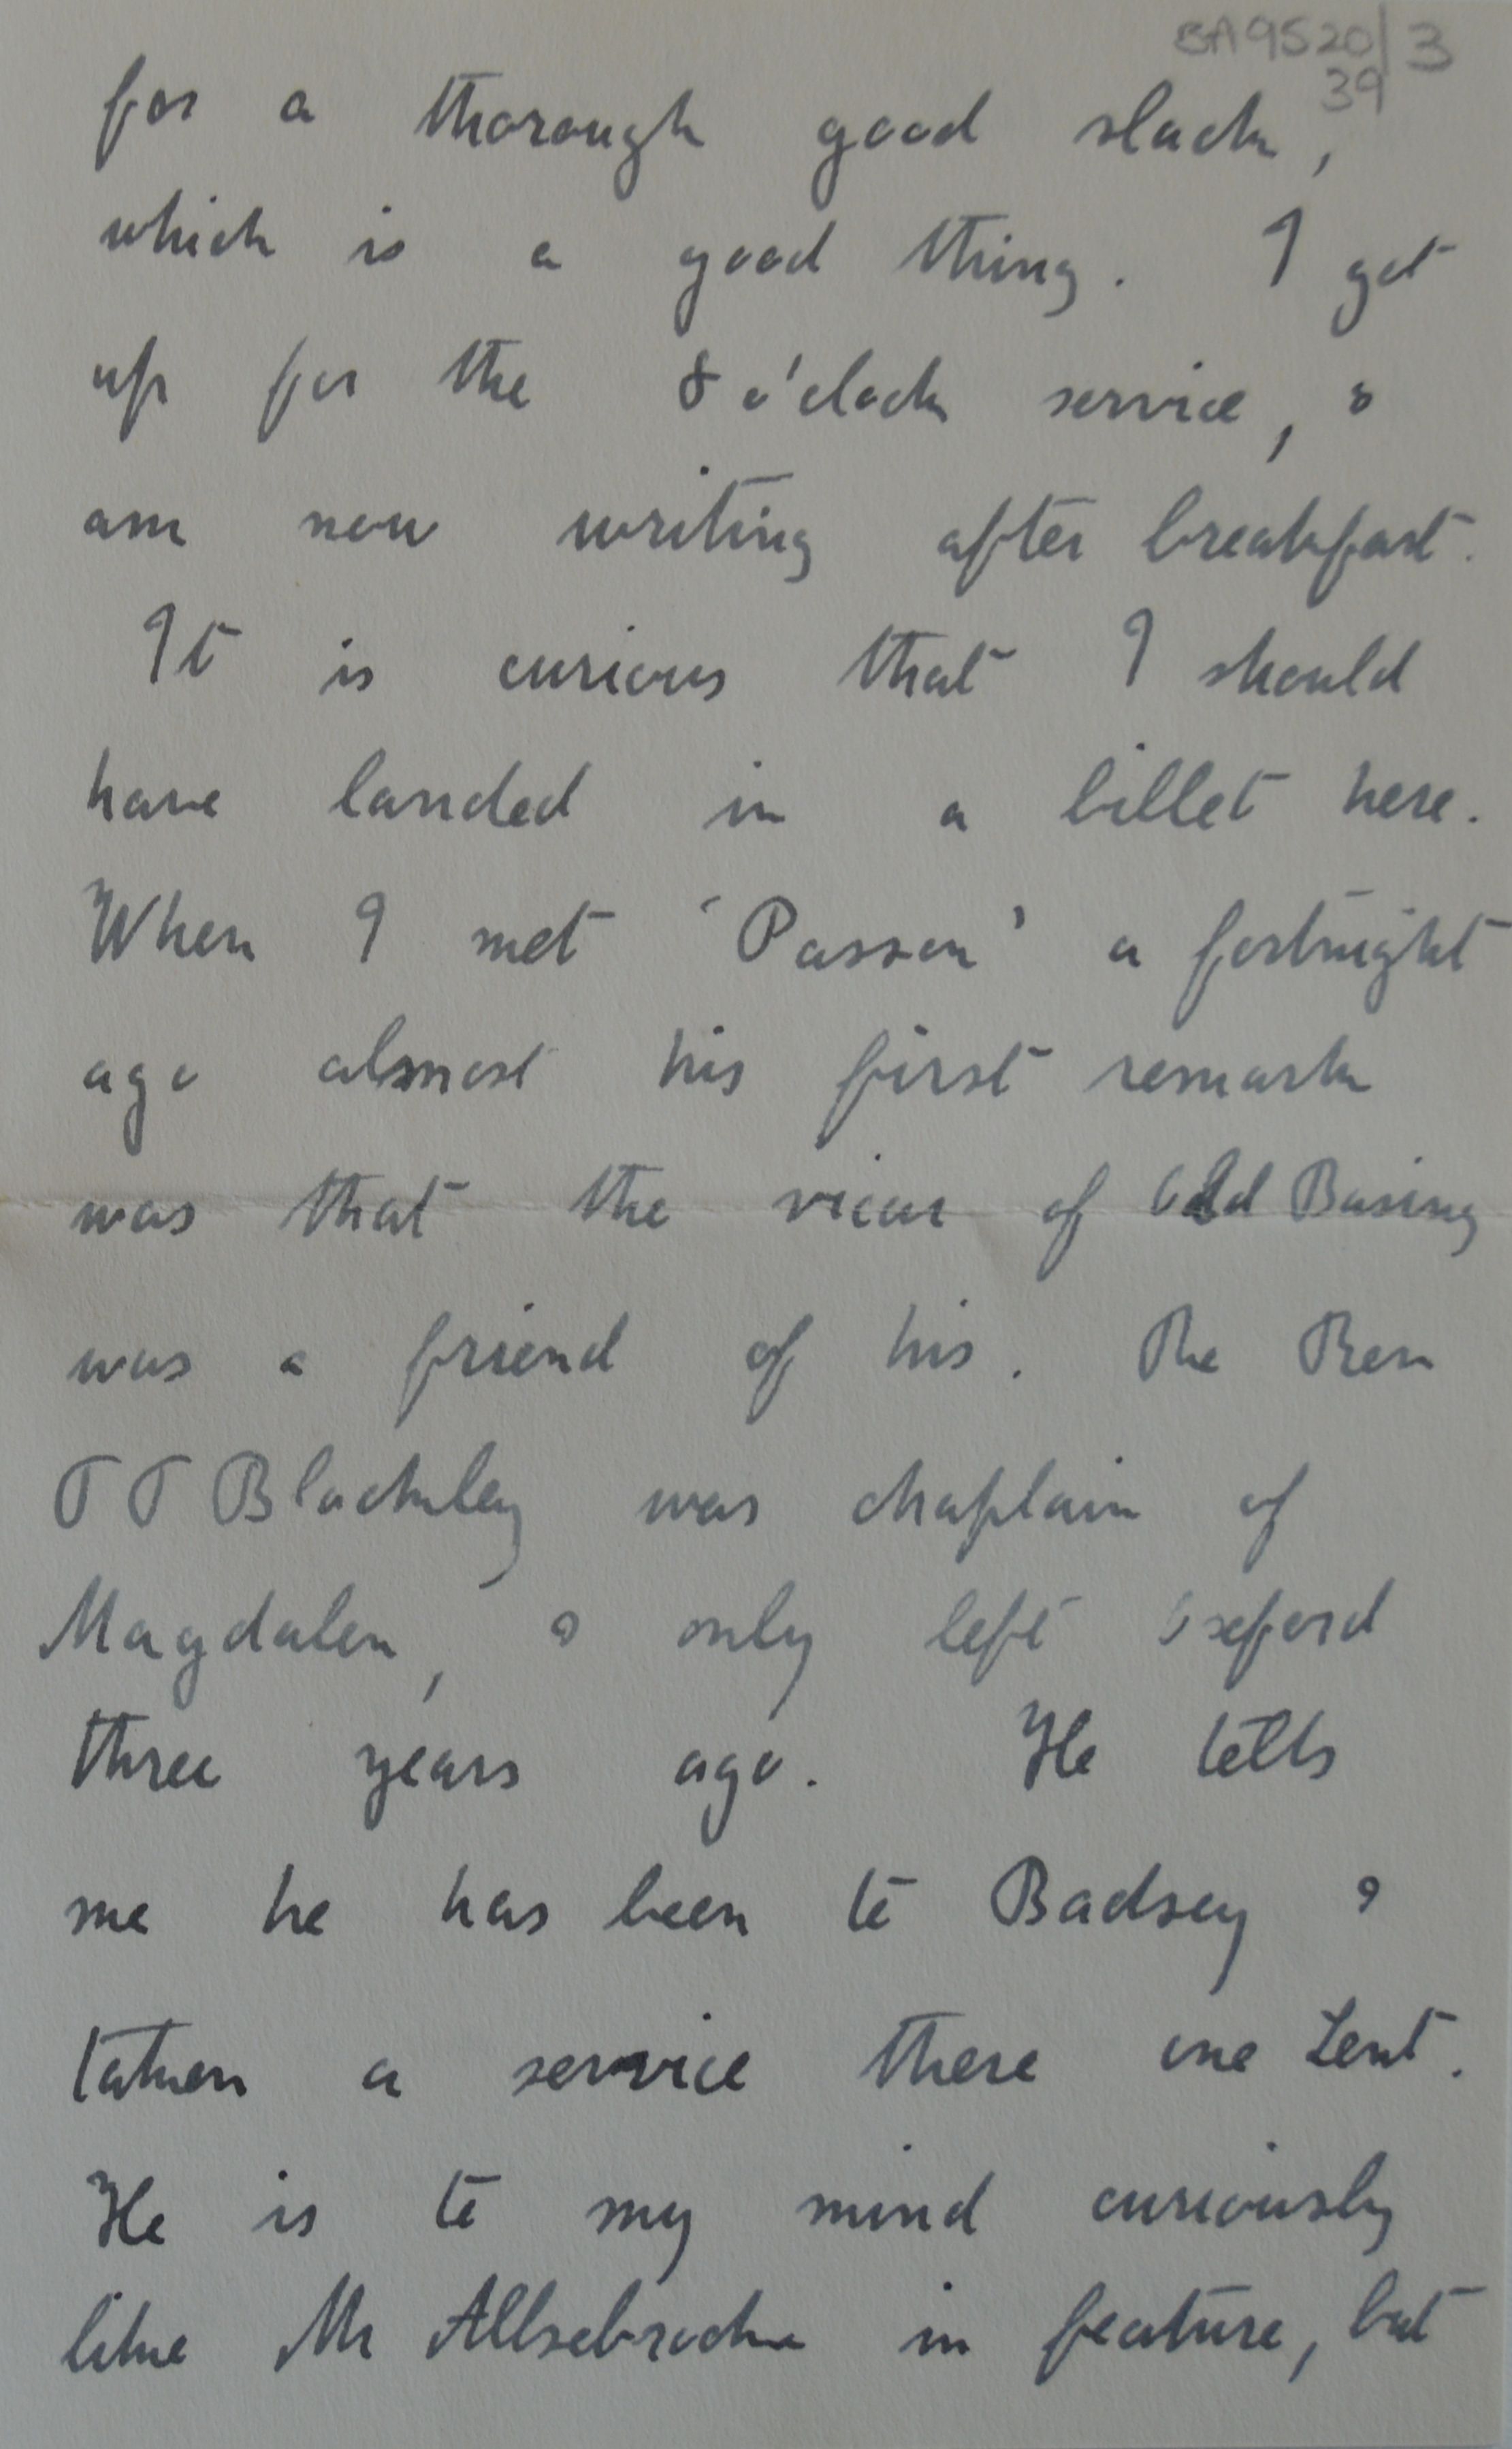 BA9520/3
39
for a thorough good slack,
which is a good thing. I got
up for the 8 o'clock service, &
am now writing after breakfast.
It is curious that I should
have landed in a billet here.
When I met 'Passon' a fortnight
ago almost his first remark
was that the vicar of Old Basing
was a friend of his. The Rev
T T Blockley was chaplain of
Magdalen, & only left Oxford
three years ago. He tells
me he has been to Badsey &
taken a service there one Lent.
He is to my mind curiously
like Mr Allsebrooke in feature, but